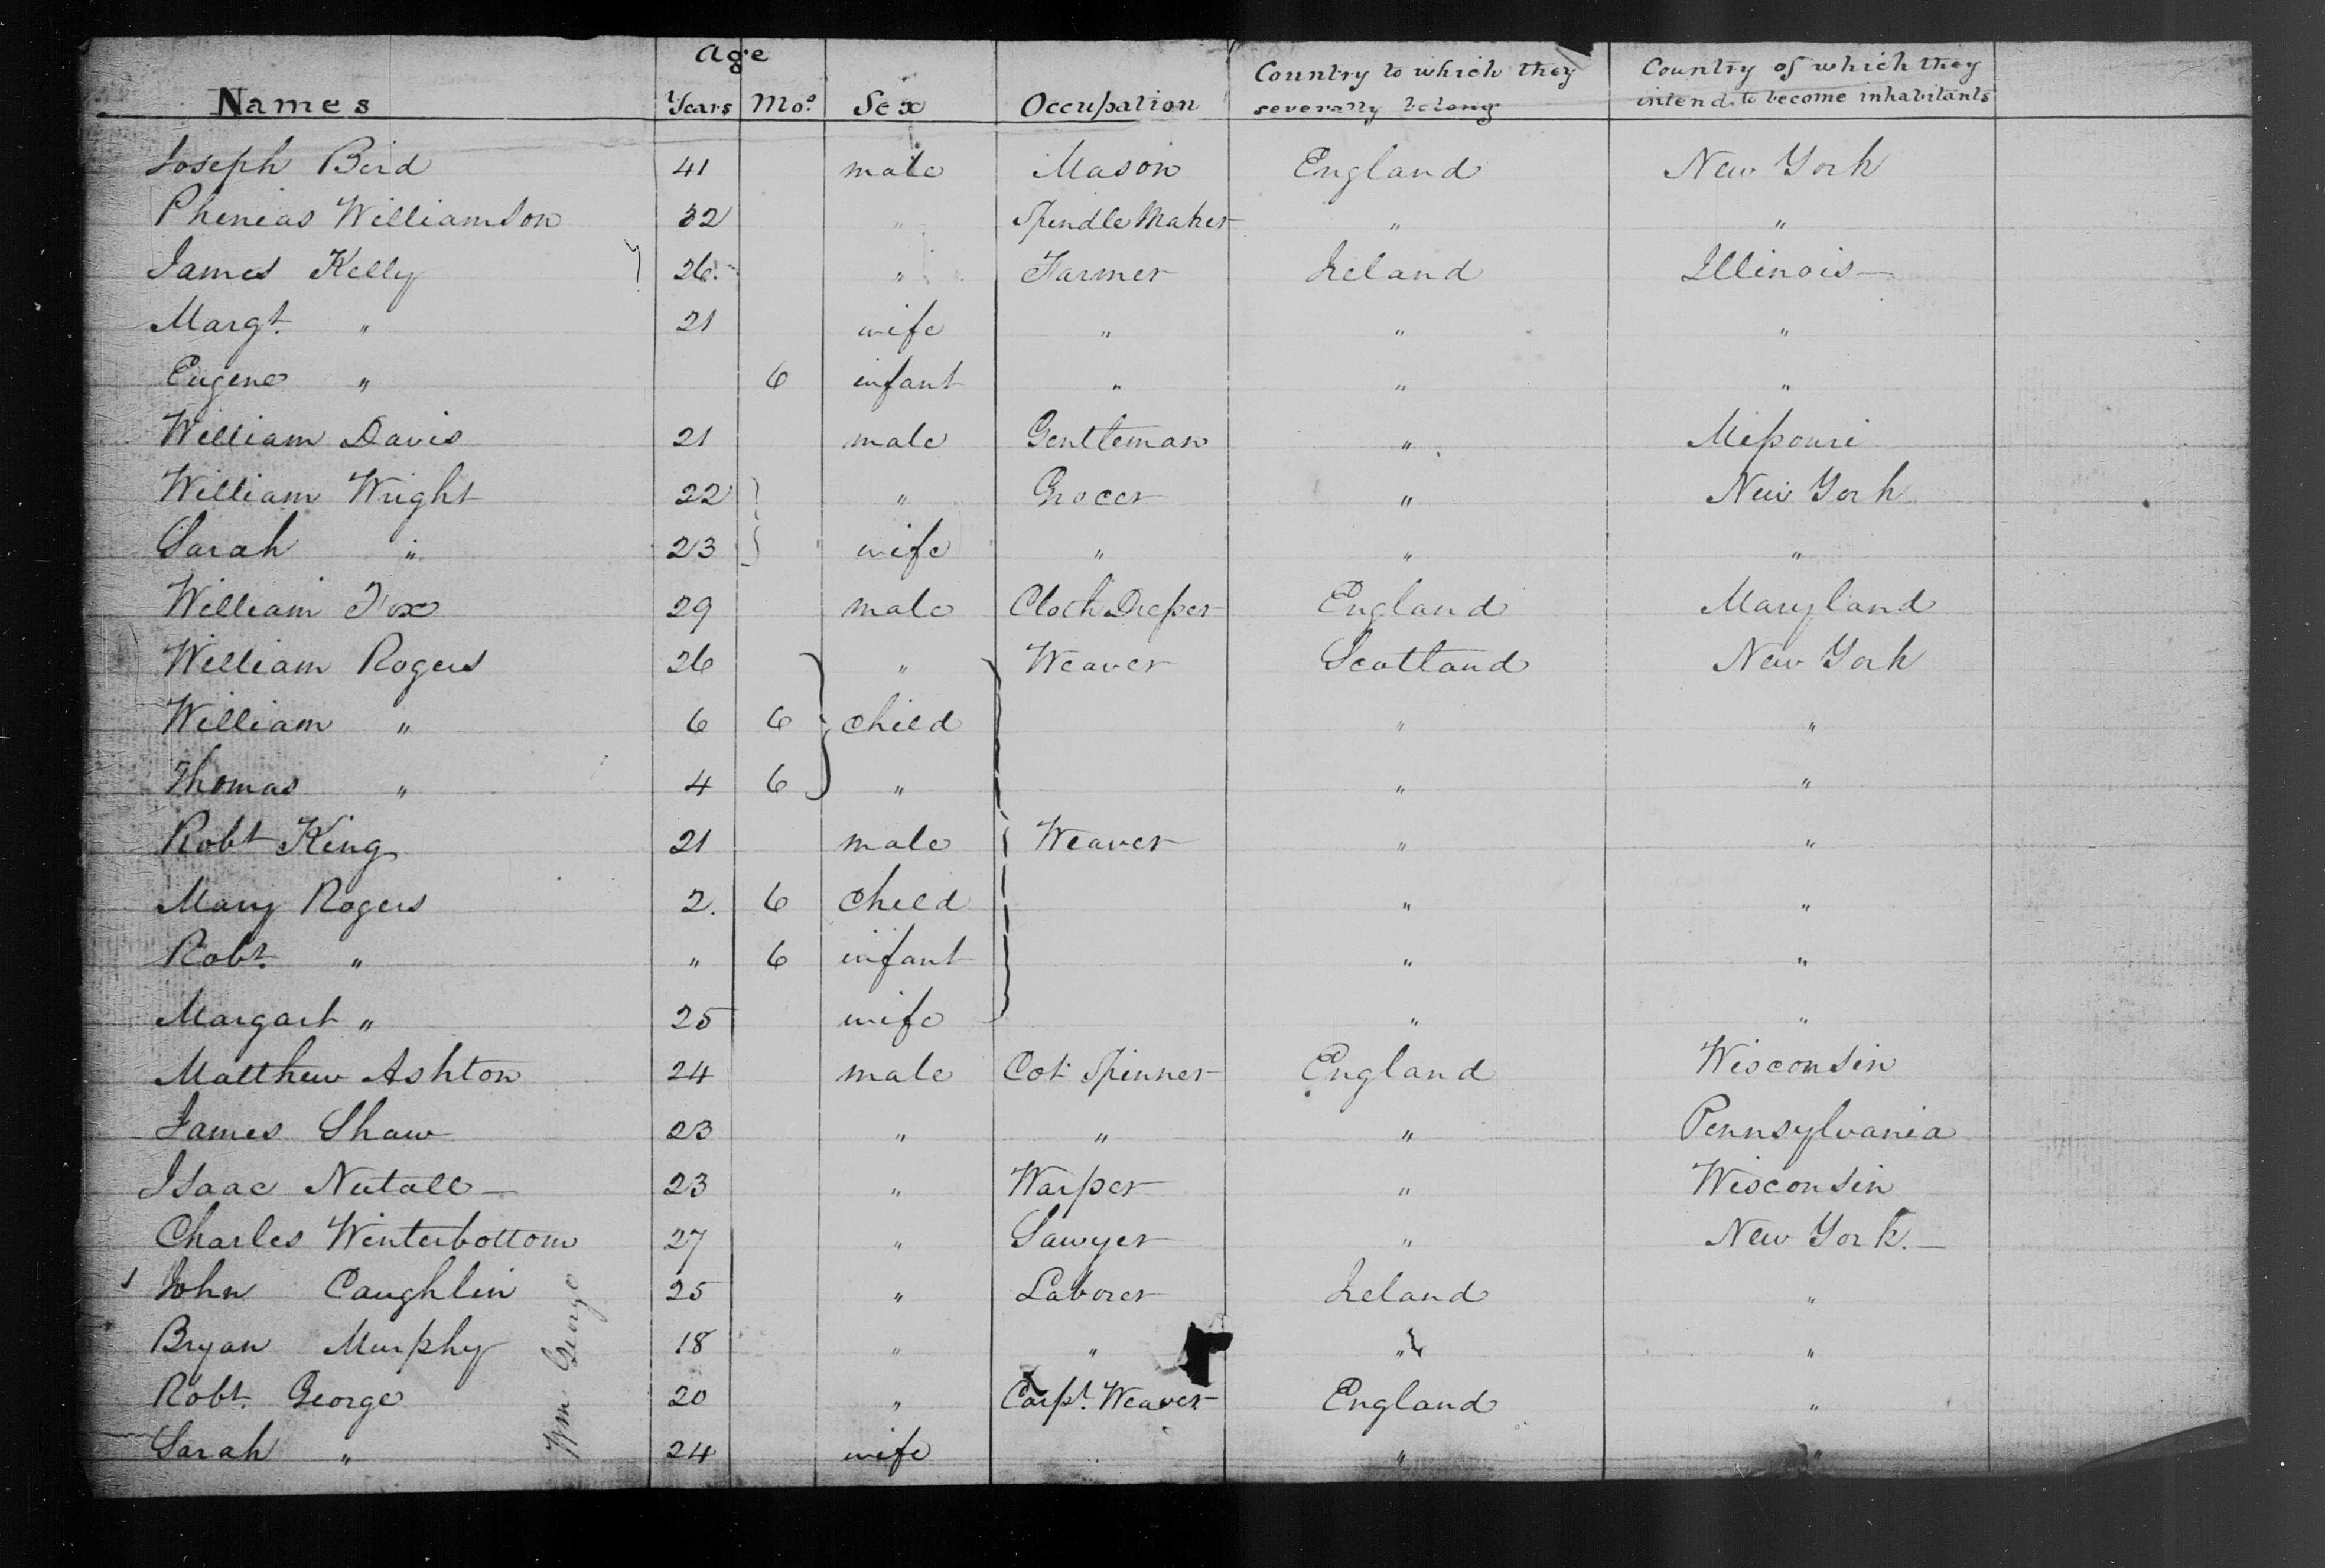 Age
Names Years Mo. Sex Occupation Country to which they severally belong Country of which they intend to become inhabitants
Joseph Bird 41 male Mason England New York
Phenias Williamson 32 " Spindle Maker " "
James Kelly 26. " Farmer Ireland Illinois
Margt. " 21 wife " " "
Eugene " 6 infant " " "
William Davis 21 male Gentleman " Missouri
William Wright 22 " Grocer " New York
Sarah " 23 wife " " "
William Fox 29 male Cloth Dresser England Maryland
William Rogers 26 " Weaver Scotland New York
William " 6 6 child " "
Thomas " 4 6 " " "
Robt King 21 male Weaver " "
Mary Rogers 2. 6 child " "
Robt. " " 6 infant " "
Margart " 25 wife " "
Matthew Ashton 24 male Cot. Spinner England Wisconsin
James Shaw 23 " " " Pennsylvania
Isaac Nutall 23 " Warper " Wisconsin
Charles Winterbottom 27 " Sawyer " New York.
John Caughlin 25 " Laborer Ireland "
Bryan Murphy 18 " " " "
Robt. George 20 " Carpt. Weaver England "
Sarah " 24 wife " "
Wm George